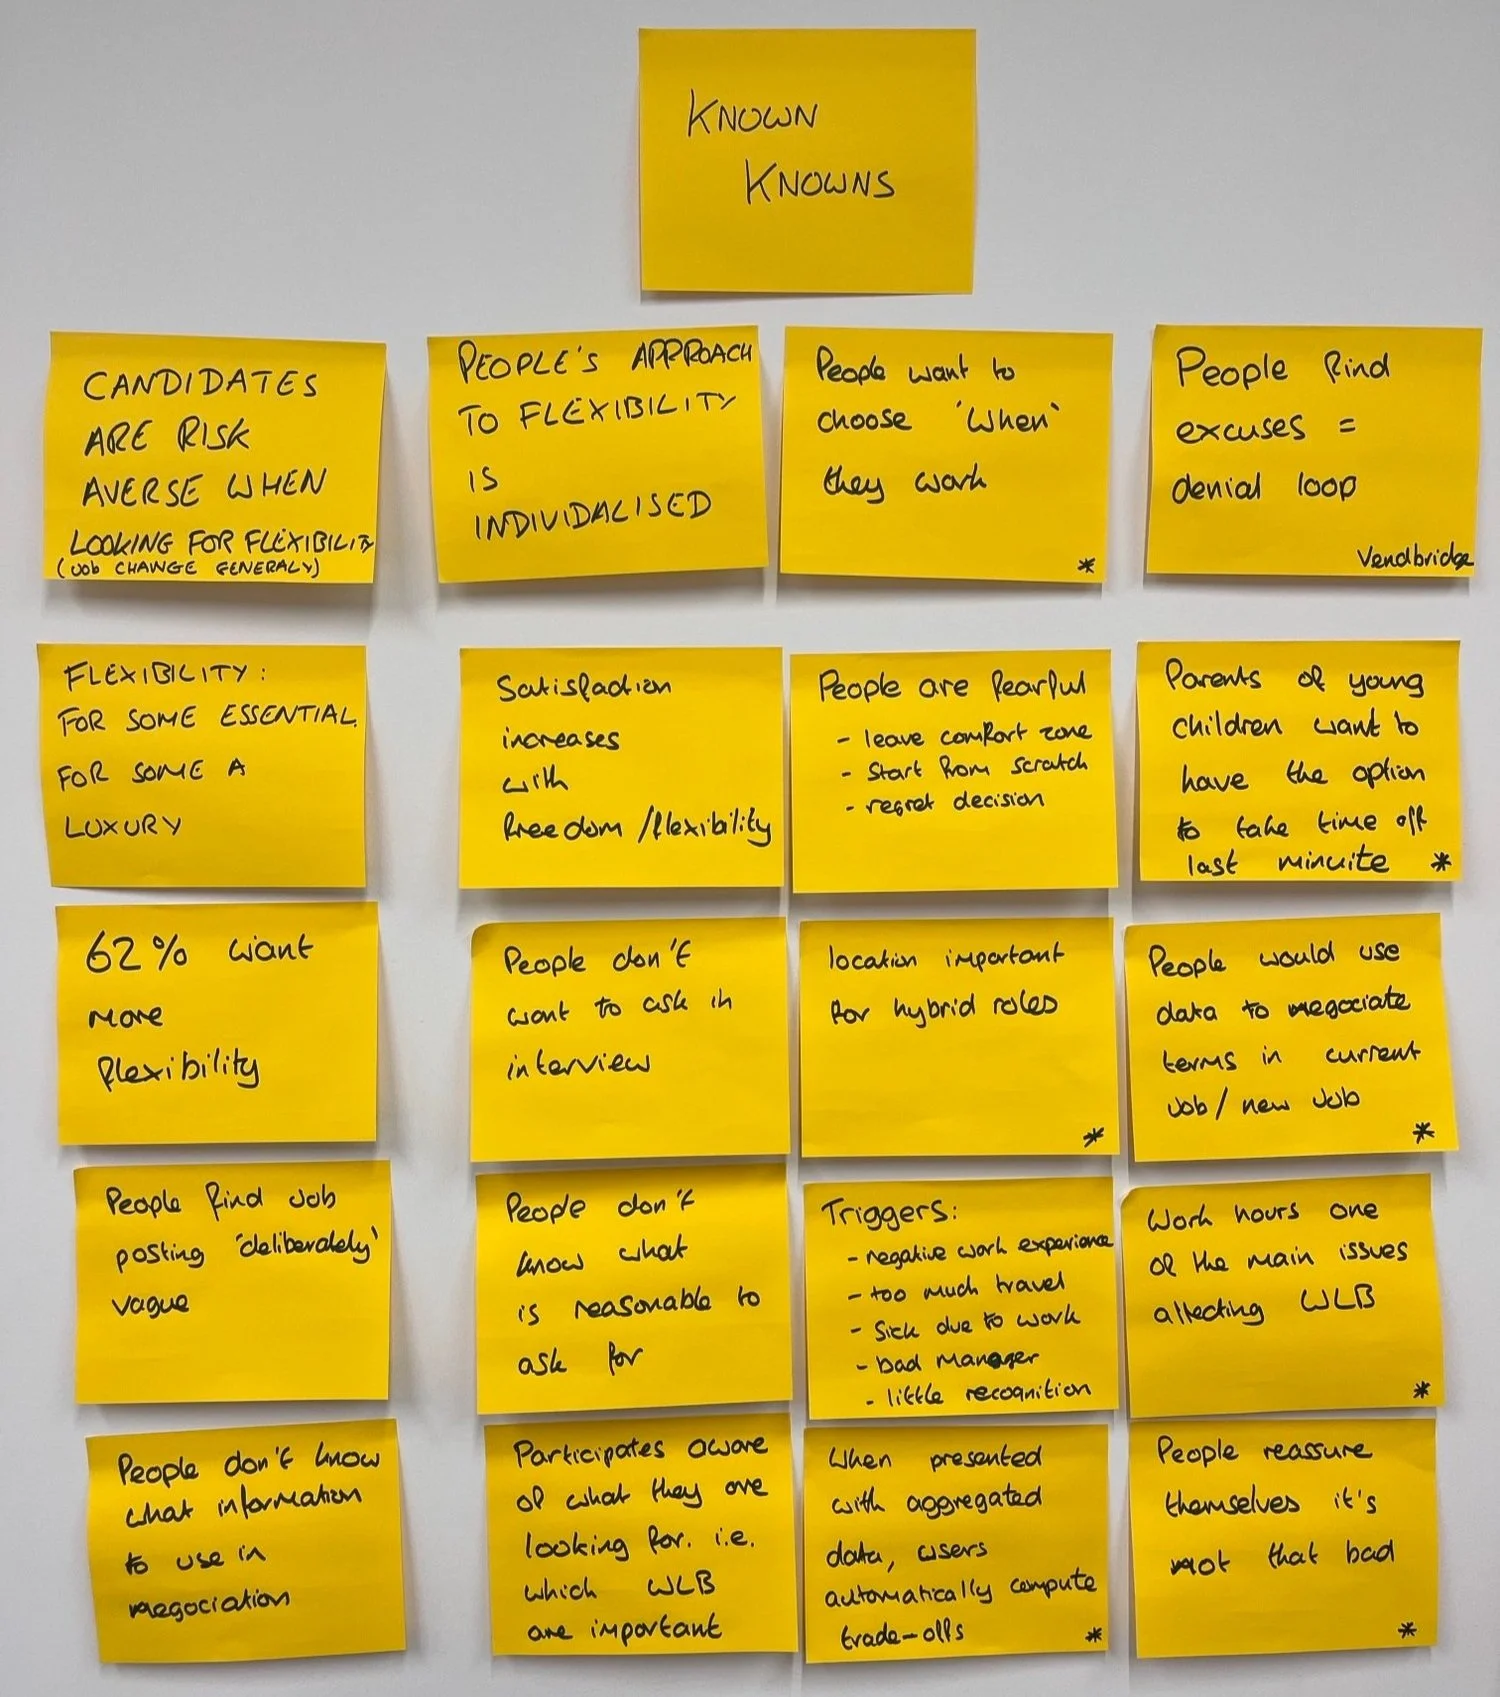 KNOWN
KNOWNS
CANDIDATES
ARE RISK
AVERSE WHEN
LOOKING FOR FLEXIBILITY
(JOB CHANGE GENERALY)
PEOPLE'S APPROACH
TO FLEXIBILITY
IS
INDIVIDALISED
People want to
choose 'when'
they work
*
People find
excuses =
denial loop
Vendbridge
FLEXIBILITY:
FOR SOME ESSENTIAL.
FOR SOME A
LUXURY
Satisfaction
increases
with
freedom/flexibility
People are fearful
- leave comfort zone
- start from scratch
- regret decision
Parents of young
children want to
have the option
to take time off
last minuite *
62% want
more
flexibility
People don't
want to ask in
interview
location important
for hybrid roles
*
People would use
data to negociate
terms in current
job/new job
*
People find job
posting 'deliberately'
vague
People don't
know what
is reasonable to
ask for
Triggers:
- negative work experience
- too much travel
- sick due to work
- bad manager
- little recognition
Work hours one
of the main issues
affecting WLB
*
People don't know
what information
to use in
negociation
Participates aware
of what they are
looking for. i.e.
which WLB
are important
When presented
with aggregated
data, users
automatically compute
trade-offs *
People reassure
themselves it's
not that bad
*